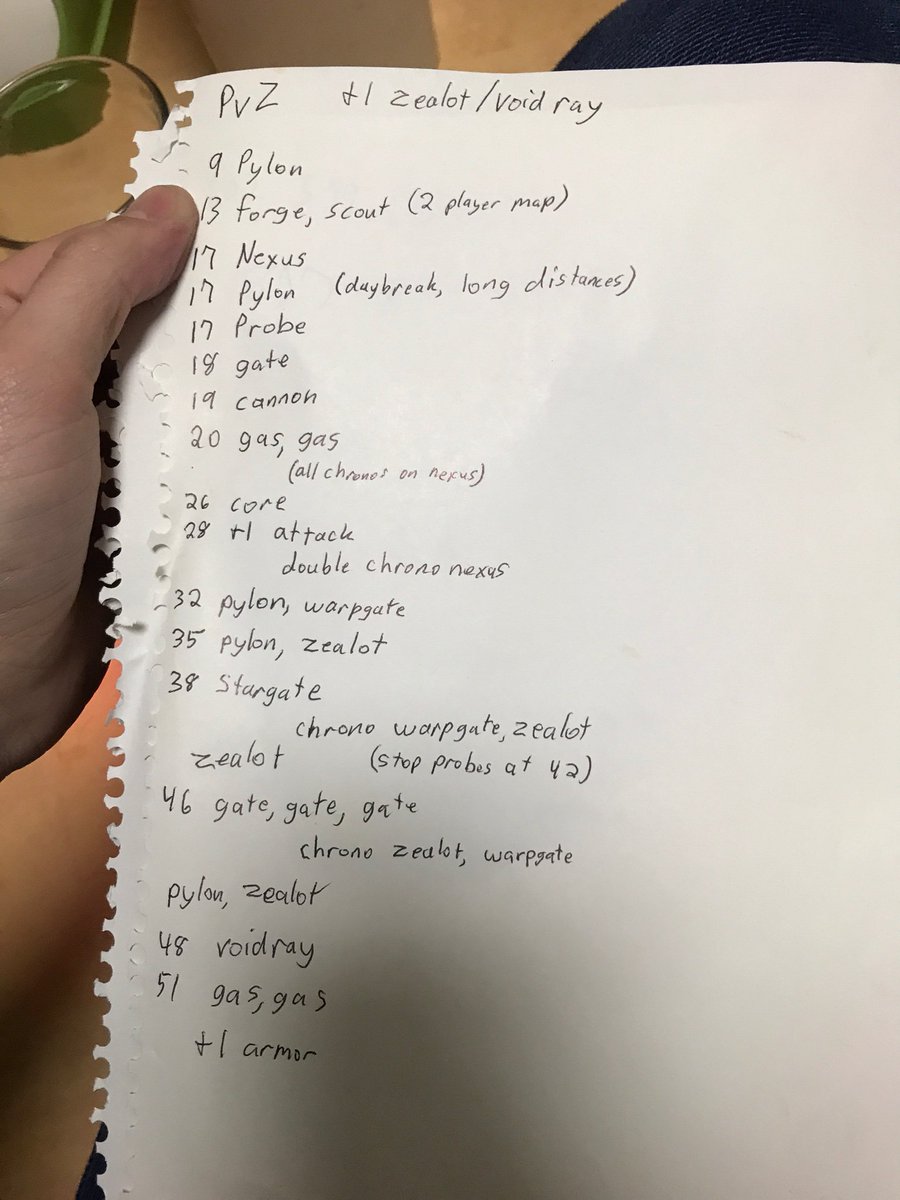 PvZ +1 zealot/void ray
9 Pylon
13 forge, scout (2 player map)
17 Nexus
17 Pylon (daybreak, long distances)
17 Probe
18 gate
19 cannon
20 gas, gas
(all chronos on nexus)
26 core
28 +1 attack
double chrono nexus
32 pylon, warpgate
35 pylon, zealot
38 Stargate
chrono warpgate, zealot
zealot (stop probes at 42)
46 gate, gate, gate
chrono zealot, warpgate
pylon, zealot
48 voidray
51 gas, gas
+1 armor